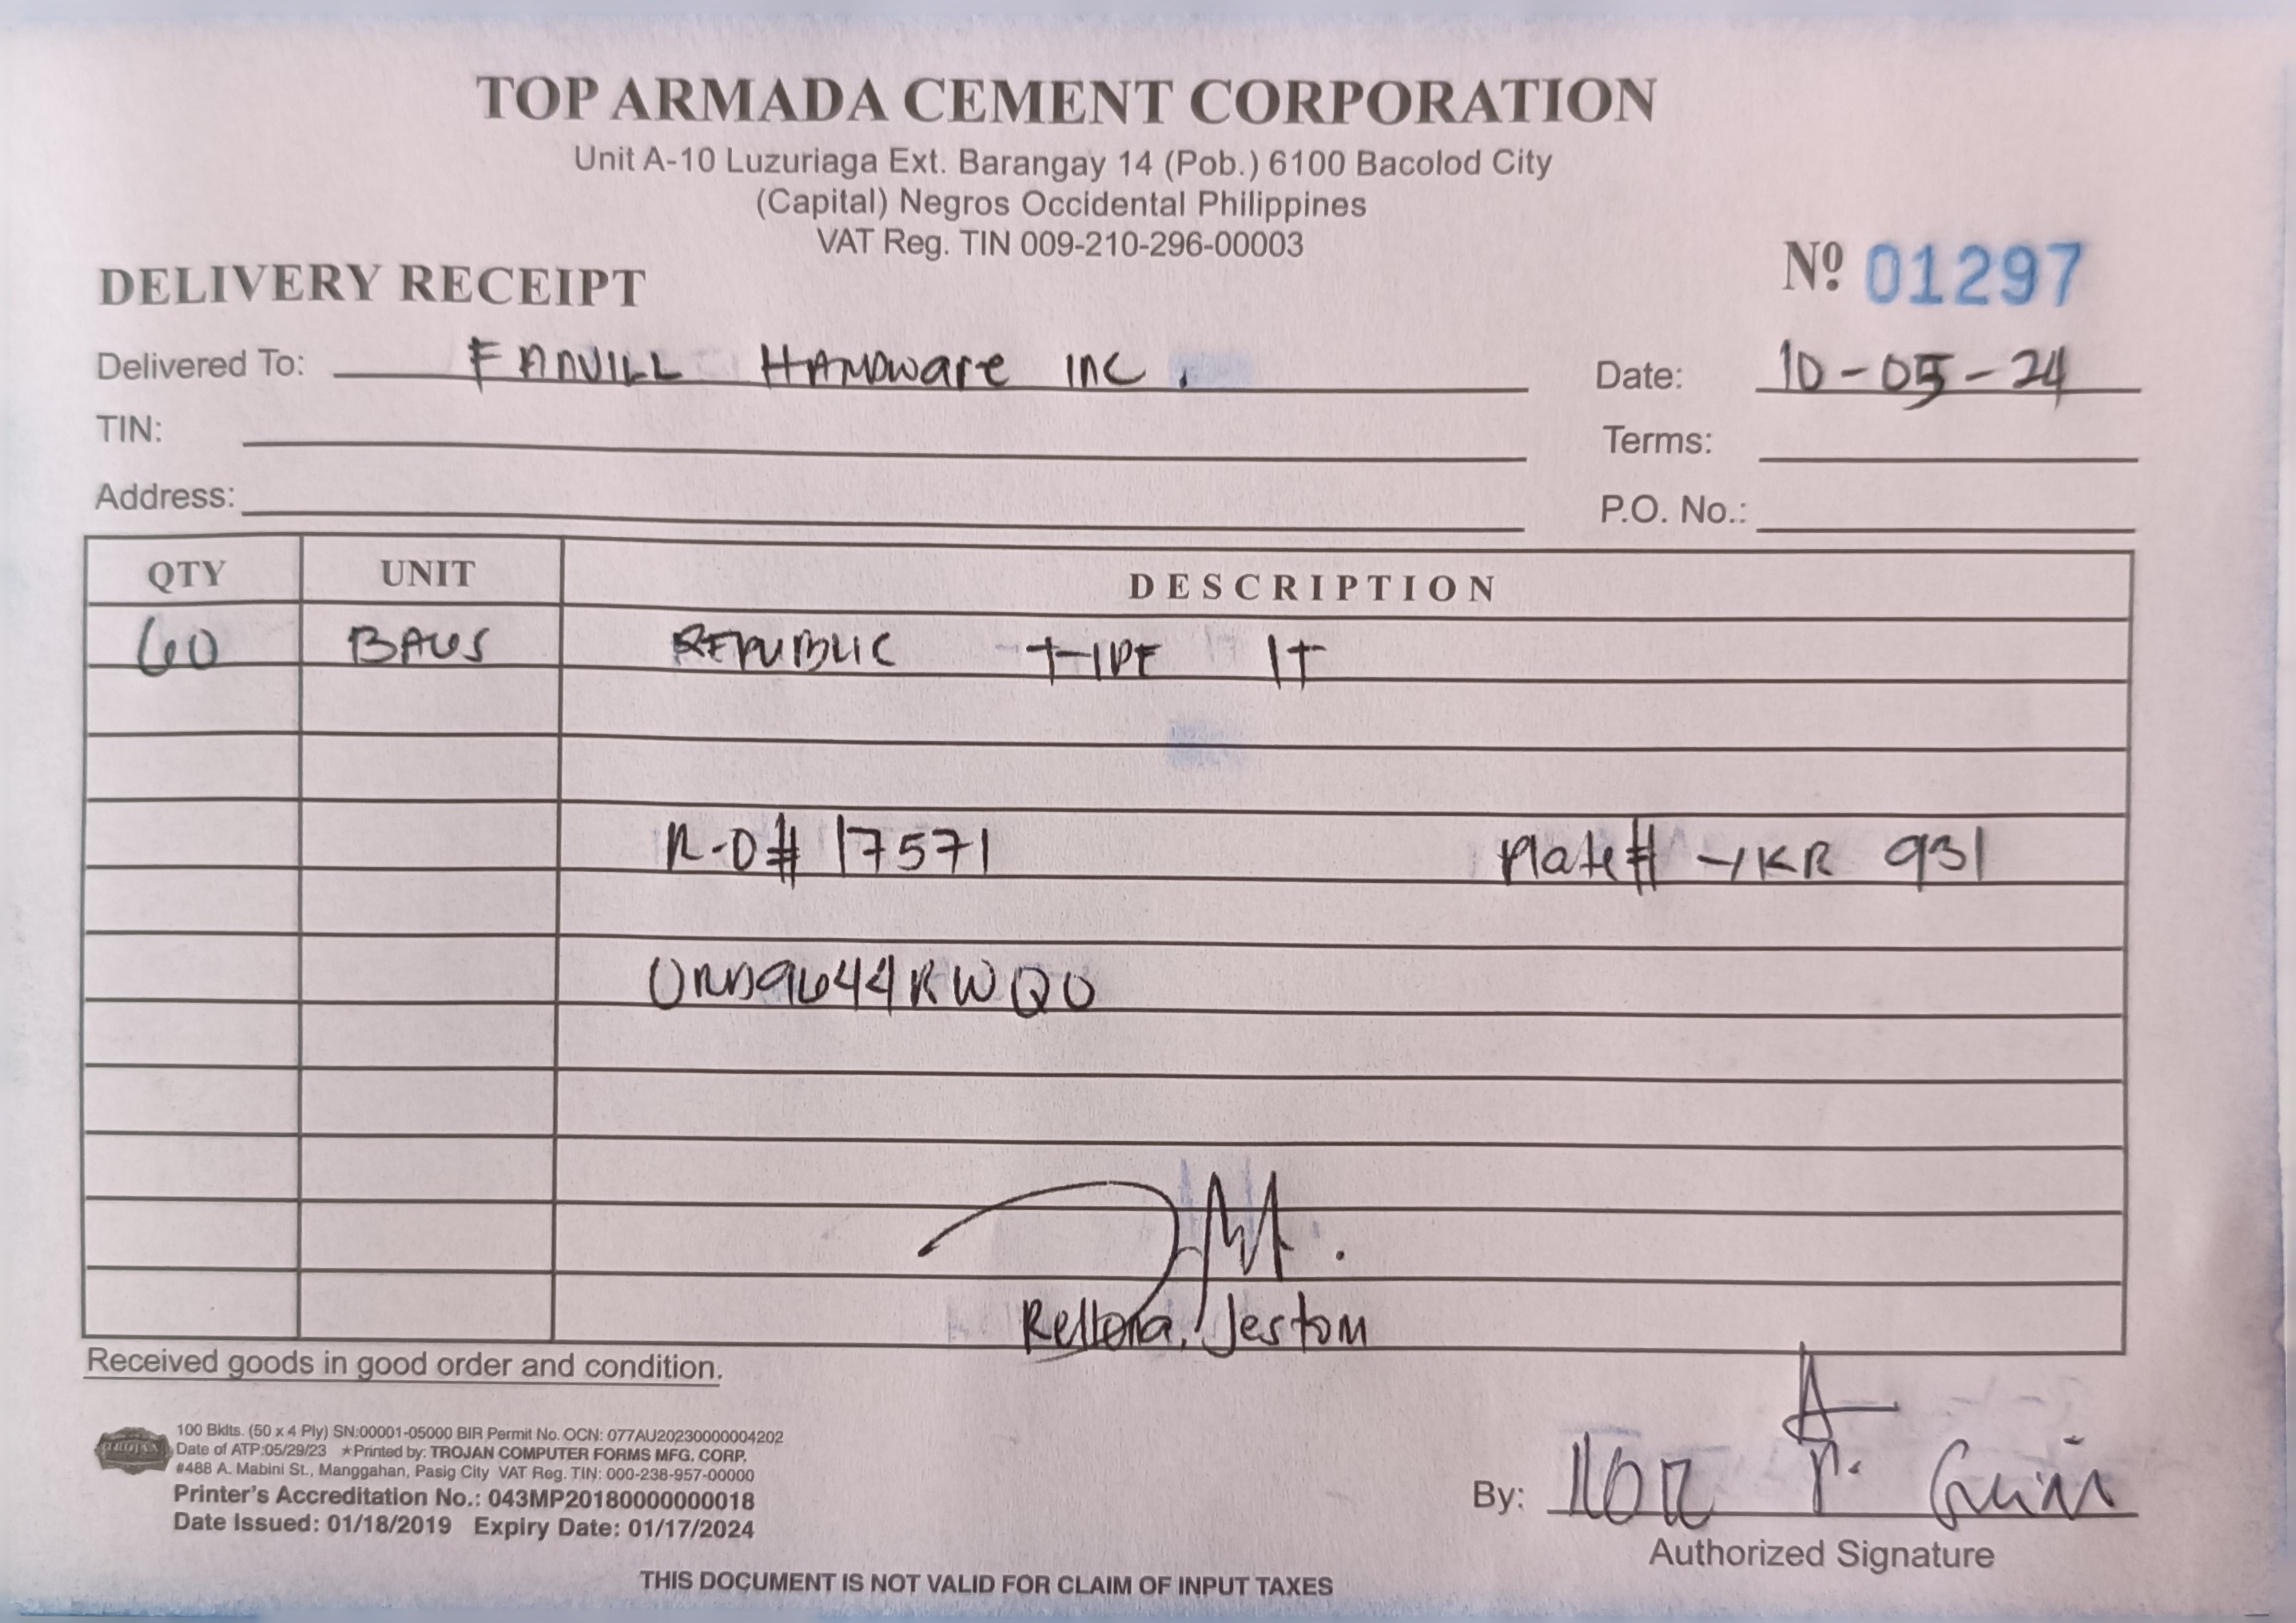 TOP ARMADA CEMENT CORPORATION
Unit A-10 Luzuriaga Ext. Barangay 14 (Pob.) 6100 Bacolod City
(Capital) Negros Occidental Philippines
VAT Reg. TIN 009-210-296-00003
DELIVERY RECEIPT
Nº 01297
Delivered To: FANVILL HARDware INC.
Date: 10-05-24
TIN:
Terms:
Address:
P.O. No.:
QTY UNIT DESCRIPTION
60 BAGS REPUBLIC TYPE 1T
R-O# 17571 Plate# YKR 931
ORD9644RWQO
Rellona, Jestom
Received goods in good order and condition.
TROJAN
100 Bklts. (50 x 4 Ply) SN:00001-05000 BIR Permit No. OCN: 077AU20230000004202
Date of ATP:05/29/23 ★Printed by: TROJAN COMPUTER FORMS MFG. CORP.
#488 A. Mabini St., Manggahan, Pasig City VAT Reg. TIN: 000-238-957-00000
Printer's Accreditation No.: 043MP20180000000018
Date Issued: 01/18/2019 Expiry Date: 01/17/2024
By:
Authorized Signature
THIS DOCUMENT IS NOT VALID FOR CLAIM OF INPUT TAXES